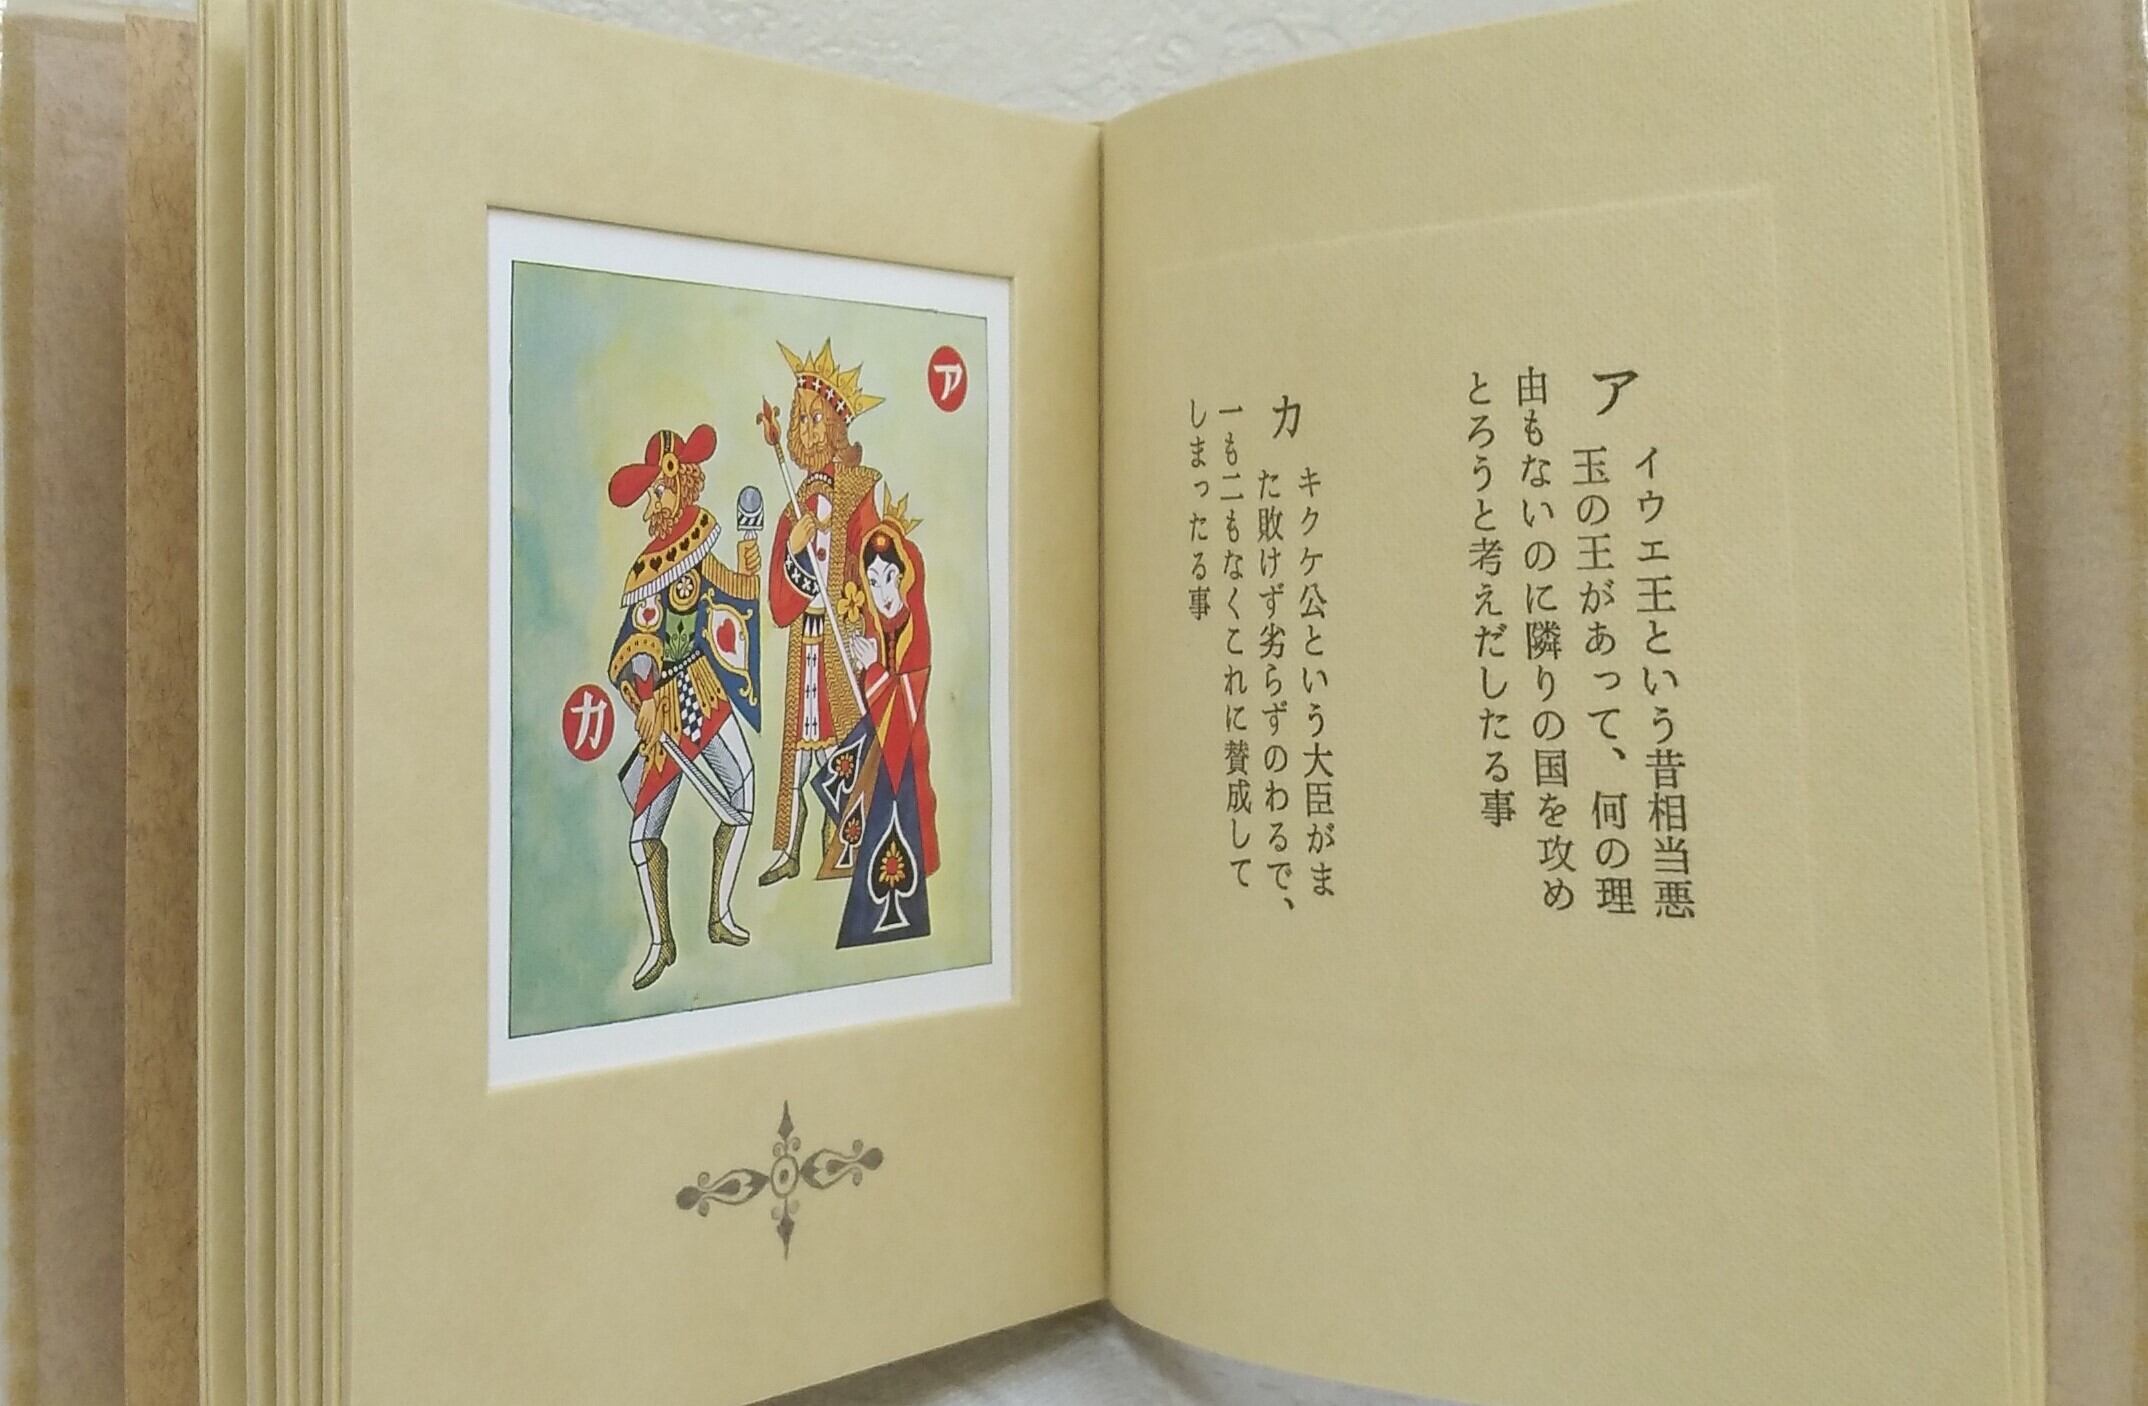 ア
カ
ア イウエ王という昔相当悪
玉の王があって、何の理
由もないのに隣りの国を攻め
とろうと考えだしたる事
カ キクケ公という大臣がま
た敗けず劣らずのわるで、
一も二もなくこれに賛成して
しまったる事